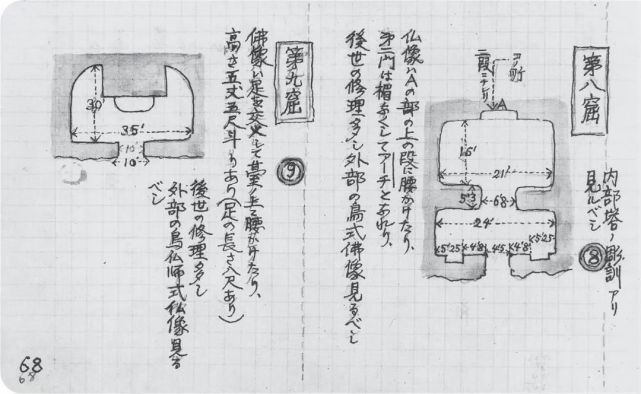 第八窟
内部塔ノ彫訓アリ
見ルベシ
⑧
二段ニナレリ
A
15'
21'
5'3
6'8
24'
5'25
4'8
4'5
4'8
5'25
仏像ハAの部の上の段に腰かけたり、
第二門は楣なくしてアーチとなれり、
後世の修理多シ外部の鳥式佛像見るべシ
第九窟
⑨
30'
35'
10'
10'
佛像ハ足を交叉して臺ノ上ニ腰かけたり、
高さ五丈五尺斗りあり(足の長さ八尺あり)
後世の修理多シ
外部の鳥仏師式仏像見る
べシ
68
68